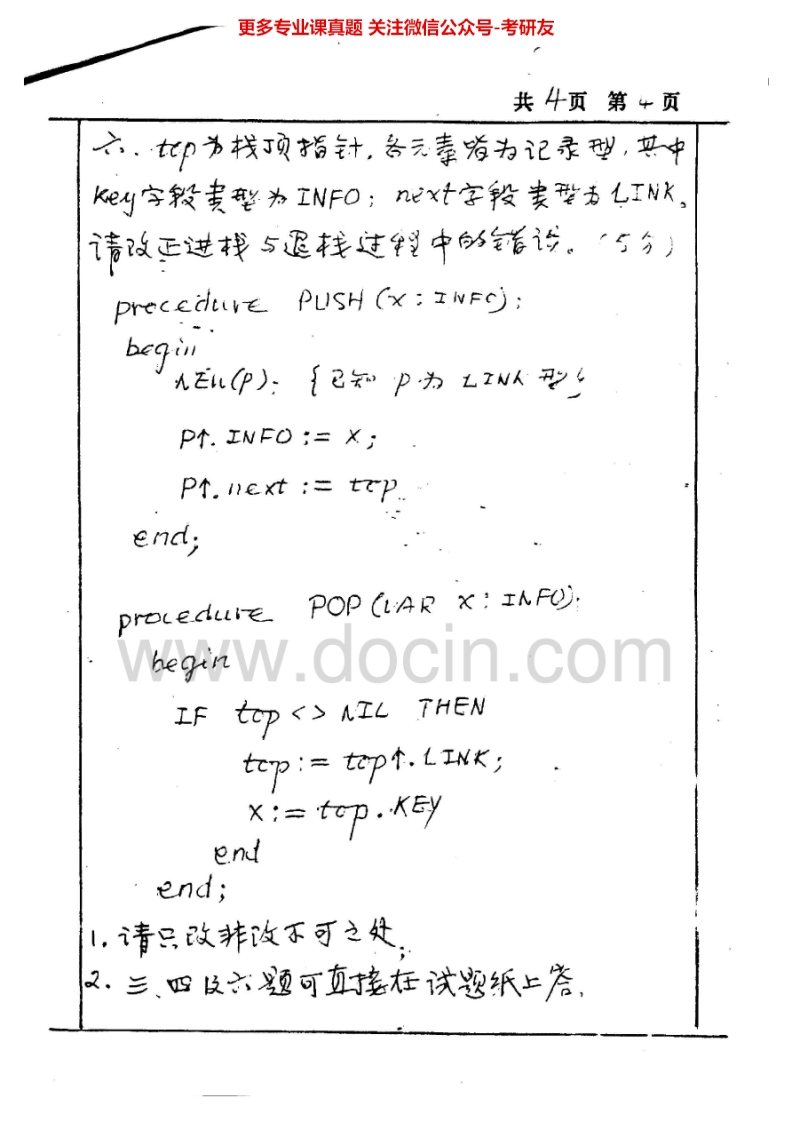 更多专业课真题 关注微信公众号-考研友
共4页 第4页
六、top为栈顶指针,各元素皆为记录型,其中
key字段类型为INFO;next字段类型为LINK。
请改正进栈与退栈过程中的错误。(5分)
procedure PUSH(X:INFO);
begin
NEW(P); {已知 P为 LINK 型}
P↑.INFO := X;
P↑.next := top
end;
procedure POP(VAR X:INFO);
www.docin.com
begin
IF top <> NIL THEN
top := top↑.LINK;
X := top.KEY
end
end;
1.请只改非改不可之处;
2.三、四及六题可直接在试题纸上答.